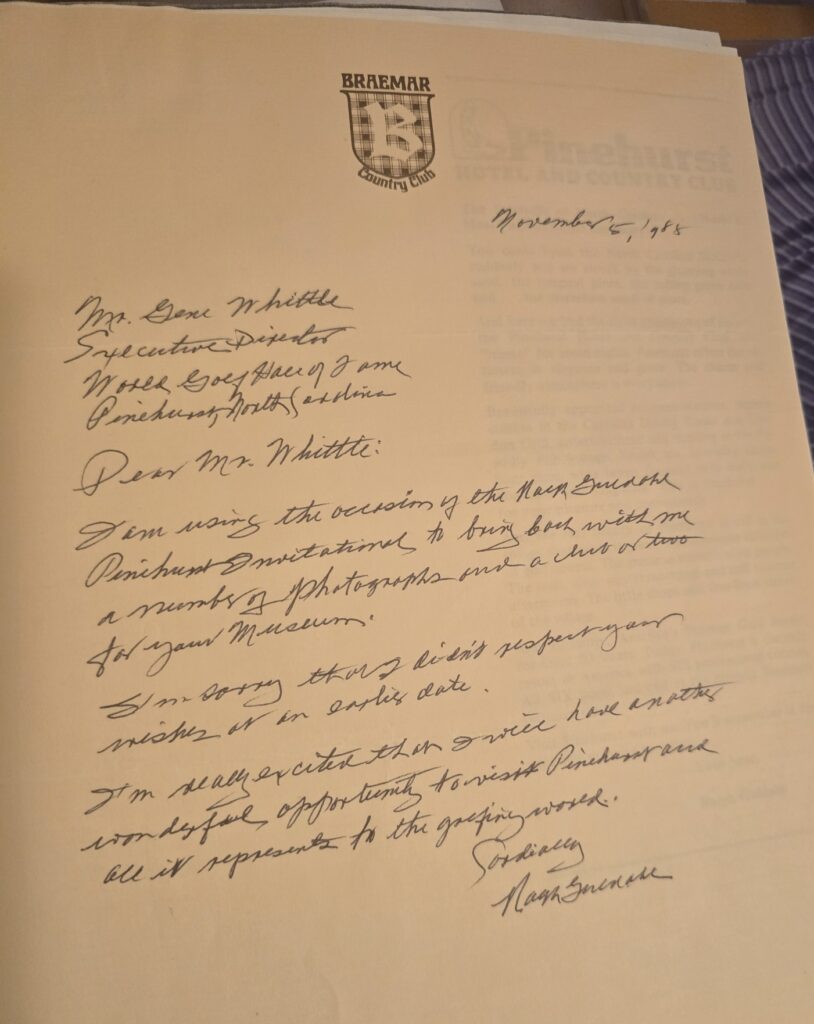 BRAEMAR
B
Country Club
Pinehurst
HOTEL AND COUNTRY CLUB
November 5, 1988
Mr. Gene Whittle
Executive Director
World Golf Hall of Fame
Pinehurst, North Carolina
Dear Mr. Whittle:
I am using the occasion of the Ralph Guldahl
Pinehurst Invitational to bring back with me
a number of photographs and a club or two
for your Museum.
I'm sorry that I didn't respect your
wishes at an earlier date.
I'm really excited that I will have another
wonderful opportunity to visit Pinehurst and
all it represents to the golfing world.
Cordially
Ralph Guldahl